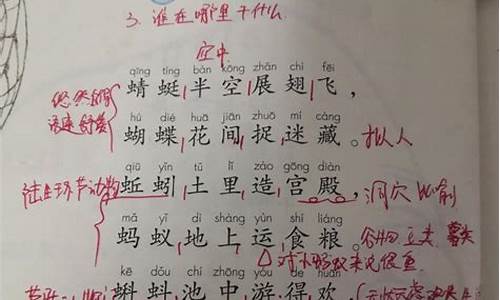 3. 谁在哪里干什么
空中
qīng tíng bàn kōng zhǎn chì fēi
蜻蜓半空展翅飞，
悠然自得
语速舒缓
hú dié huā jiān zhuō mí cáng
蝴蝶花间捉迷藏。 拟人
qiū yǐn tǔ lǐ zào gōng diàn
陆生环节动物 蚯蚓土里造宫殿， 洞穴 比喻
mǎ yǐ dì shàng yùn shí liáng
蚂蚁地上运食粮。
对小蚂蚁来说很重
kē dǒu chí zhōng yóu de huān
蝌蚪池中游得欢